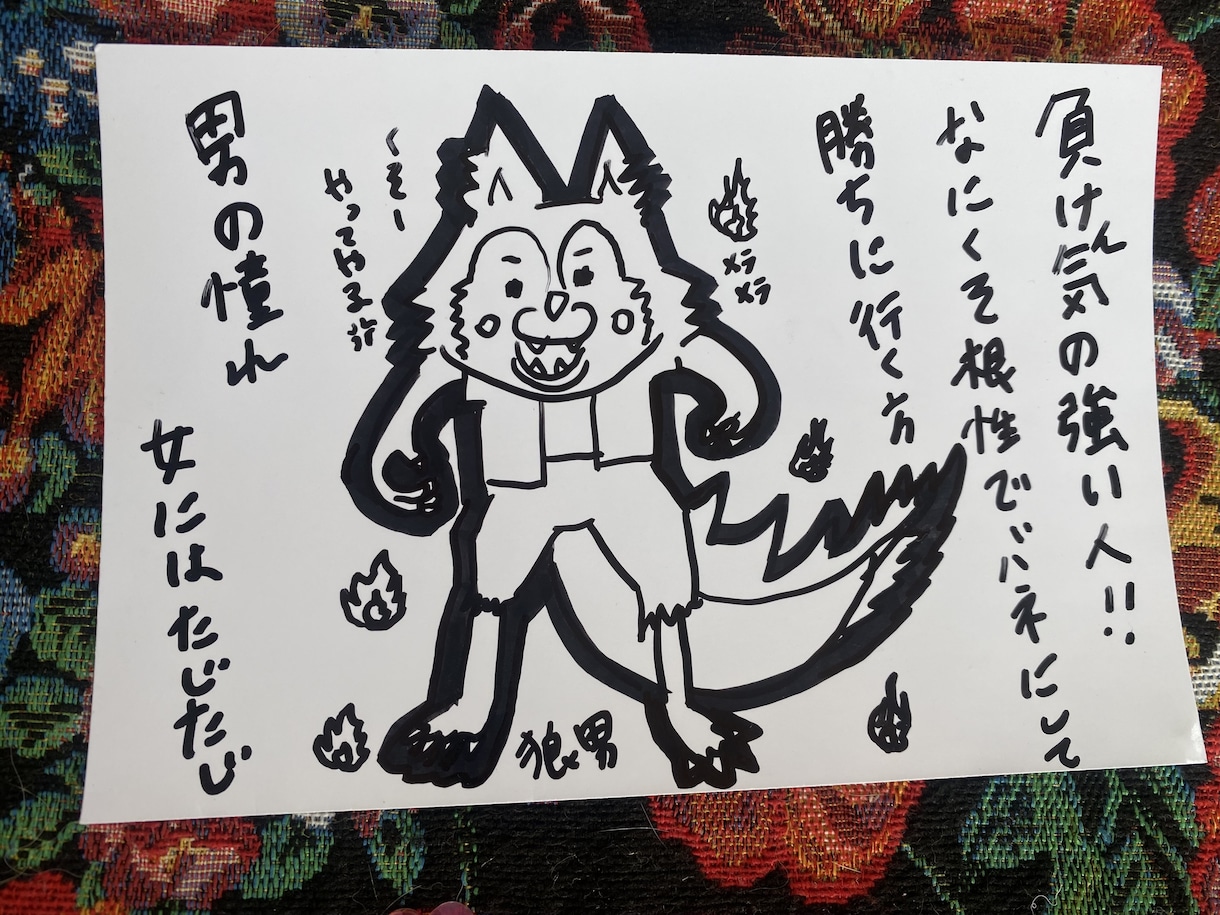 負けん気の強い人!!
なにくそ根性でバネにして
勝ちに行く方
メラ
メラ
くそー
やってやる
男の憧れ
女にはたじたじ
狼男